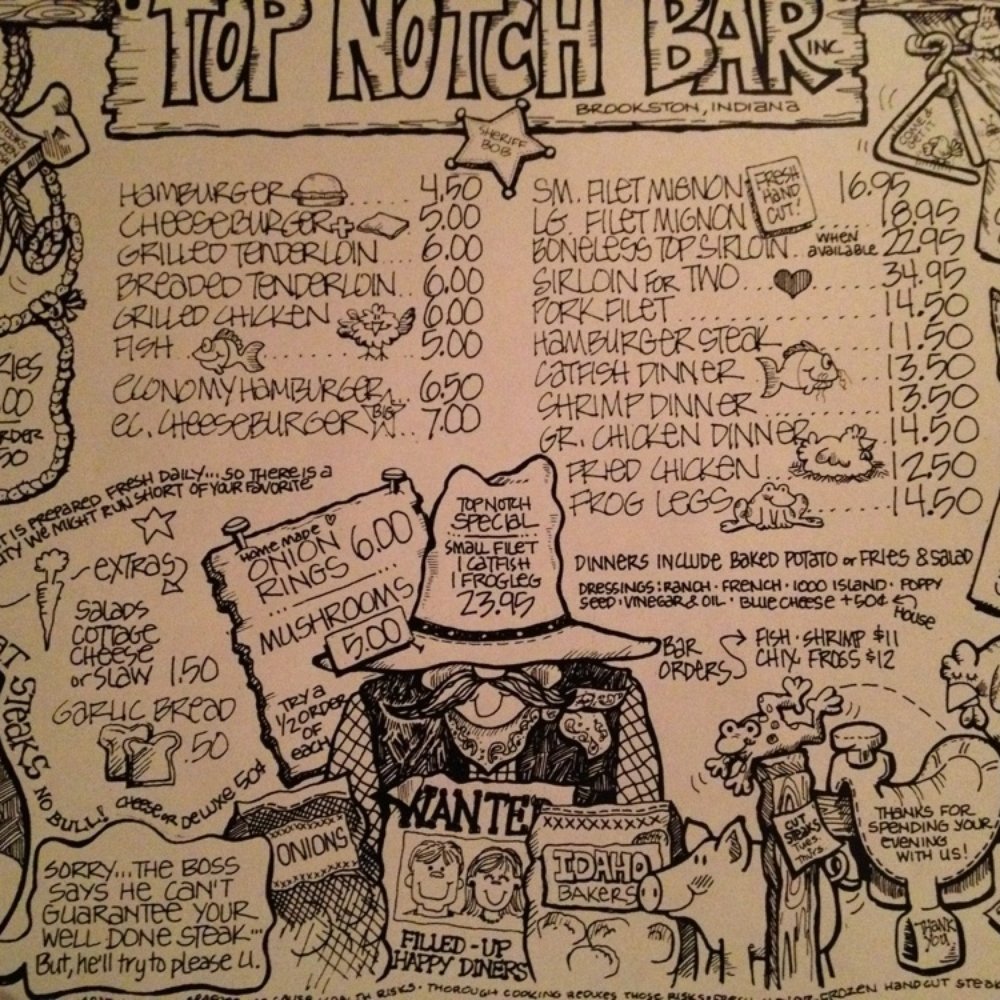 "TOP NOTCH BAR" INC.
BROOKSTON, INDIANA
SHERIFF BOB
HAMBURGER ........ 4.50
CHEESEBURGER+ 5.00
GRILLED TENDERLOIN... 6.00
BREADED TENDERLOIN... 6.00
GRILLED CHICKEN 6.00
FISH ............. 5.00
ECONOMY HAMBURGER... 6.50
EC. CHEESEBURGER BIG ... 7.00
SM. FILET MIGNON 16.95
LG. FILET MIGNON 18.95
FRESH HAND CUT!
BONELESS TOP SIRLOIN.. WHEN AVAILABLE 22.95
SIRLOIN FOR TWO ... 34.95
PORK FILET ............ 14.50
HAMBURGER STEAK ........ 11.50
CATFISH DINNER .... 13.50
SHRIMP DINNER ......... 13.50
GR. CHICKEN DINNER .. 14.50
FRIED CHICKEN .... 12.50
FROG LEGS ..... 14.50
DINNERS INCLUDE BAKED POTATO or FRIES & SALAD
DRESSINGS: RANCH • FRENCH • 1000 ISLAND • POPPY
SEED • VINEGAR & OIL • BLUE CHEESE + 50¢
HOUSE
BAR ORDERS
FISH • SHRIMP $11
CHIX, FROGS $12
IS PREPARED FRESH DAILY... SO THERE IS A
WE MIGHT RUN SHORT OF YOUR FAVORITE
EXTRAS
SALADS
COTTAGE
CHEESE
or SLAW 1.50
GARLIC BREAD
.50
CHEESE OR DELUXE 50¢
STEAKS NO BULL!
HOMEMADE
ONION
RINGS 6.00
MUSHROOMS
5.00
TRY A
1/2 ORDER
OF
EACH
TOP NOTCH
SPECIAL
SMALL FILET
1 CATFISH
1 FROG LEG
23.95
SORRY... THE BOSS
SAYS HE CAN'T
GUARANTEE YOUR
WELL DONE STEAK...
But, he'll try to please U.
ONIONS
WANTED
FILLED-UP
HAPPY DINERS
IDAHO
BAKERS
CUT
STEAKS
TUES.
THURS
THANKS FOR
SPENDING YOUR
EVENING
WITH US!
THANK
YOU
HEALTH RISKS • THOROUGH COOKING REDUCES THOSE RISKS • FROZEN HANDCUT